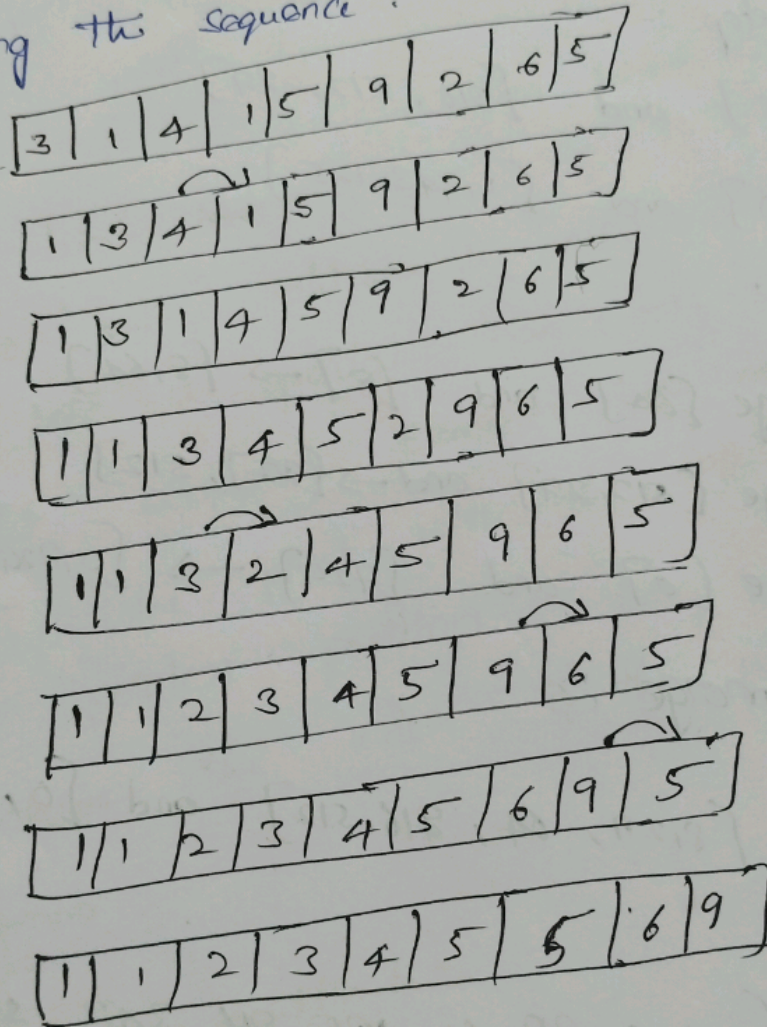 ng the sequence.
3 | 1 | 4 | 1 | 5 | 9 | 2 | 6 | 5
1 | 3 | 4 | 1 | 5 | 9 | 2 | 6 | 5
1 | 3 | 1 | 4 | 5 | 9 | 2 | 6 | 5
1 | 1 | 3 | 4 | 5 | 2 | 9 | 6 | 5
1 | 1 | 3 | 2 | 4 | 5 | 9 | 6 | 5
1 | 1 | 2 | 3 | 4 | 5 | 9 | 6 | 5
1 | 1 | 2 | 3 | 4 | 5 | 6 | 9 | 5
1 | 1 | 2 | 3 | 4 | 5 | 5 | 6 | 9